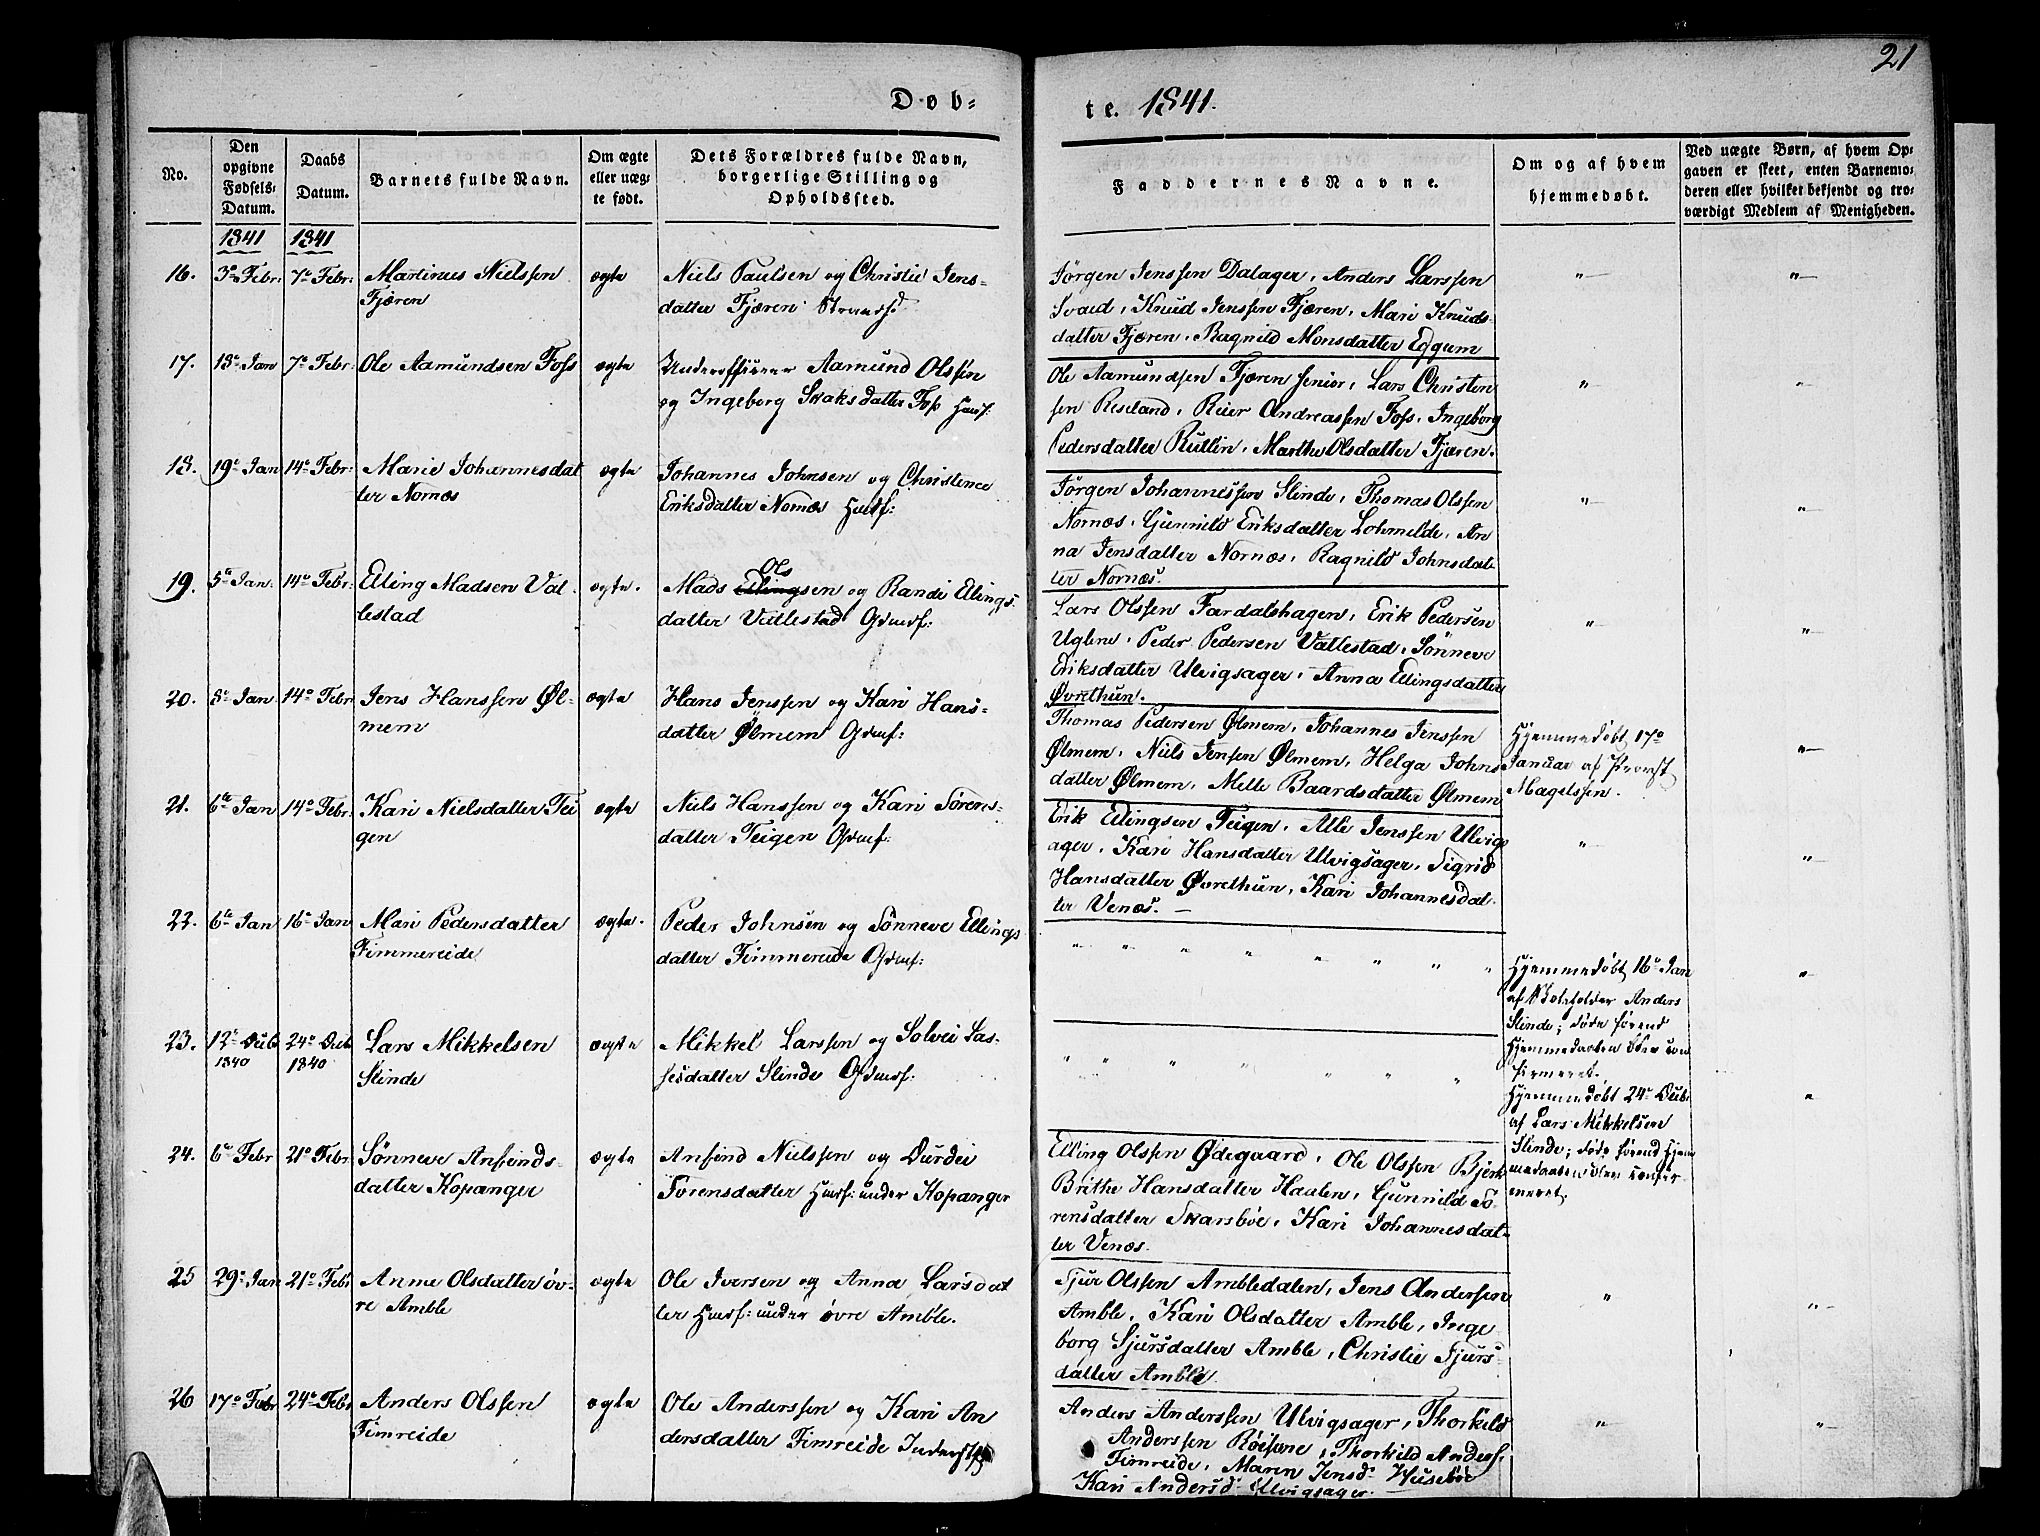 21
Døb-
te. 1841.
No.
Den opgivne Fødsels-Datum.
Daabs Datum.
Barnets fulde Navn.
Om ægte eller uægte født.
Dets Forældres fulde Navn, borgerlige Stilling og Opholdssted.
Faddernes Navne.
Om og af hvem hjemmedøbt.
Ved uægte Børn, af hvem Opgaven er skeet, enten Barnemoderen eller hvilket bekjendt og troværdigt Medlem af Menigheden.
1841 1841
16. 3e Febr: 7e Febr: Martinus Nielssen
Fjæren
ægte
Niels Paulsen og Christie Jens-
datter Fjæren Strands:
Jörgen Jenssen Dalager, Anders Larssen
Svaed, Knud Jenssen Fjæren, Mari Knuds-
datter Fjæren, Ragnild Monsdatter Eggum
17. 18e Jan 7e Febr: Ole Aamundsen Foss
ægte
Underofficeer Aamund Olssen
og Ingeborg Skaksdatter Foss Huusf:
Ole Aamundsen Fjæren senior, Lars Christen
sen Reseland, Reier Andreassen Foss, Ingeborg
Pedersdatter Rutlin, Marthe Olsdatter Fjæren.
18. 19e Jan 14e Febr: Marie Johannesdat
ter Nornæs
ægte
Johannes Johnsen og Christence
Eriksdatter Nornæs Huusf:
Jörgen Johannessen Slinde, Thomas Olssen
Nornæs, Gunnild Eriksdatter Lohmelde, An
na Jensdatter Nornæs, Ragnild Johnsdat-
ter Nornæs.
19. 5te Jan: 14e Febr: Elling Madsen Val-
lestad
ægte.
Ols
Mads Ellingsen og Randi Ellings-
datter Vallestad Gdmdf:
Lars Olssen Fardalshagen, Erik Pedersen
Uglene, Peder Pedersen Vallestad, Sönneve
Eriksdatter Ulvigsager, Anna Ellingsdatter
Øvrethun.
20. 8e Jan 14e Febr Jens Hanssen Øl-
mem
ægte
Hans Jenssen og Kari Hans-
datter Ølmem Gdmf:
Thomas Pedersen Ølmem, Johannes Jenssen
Ølmem, Niels Jensen Ølmem, Helga Johns
datter Ølmem, Melle Baardsdatter Ølmem
Hjemmedøbt 17e
Januar af Provst
Magelssen.
21. 6te Jan 14e Febr: Kari Nielsdatter Tei
gen
ægte
Niels Hanssen og Kari Sörens-
datter Teigen Gdmf:
Erik Ellingsen Teigen, Atle Jenssen Ulvigs
ager, Kari Hansdatter Ulvigsager, Sigrid
Hansdatter Øvrethun, Kari Johannesdat-
ter Venæs.
22. 6te Jan 16e Jan Mari Pedersdatter
Fimmereide
ægte.
Peder Johnsen og Sönneve Ellings
datter Fimmereide Gdmf:
Hjemmedøbt 16e Jan
af Anders
Slinde; døde førend
Hjemmedaaben blev con
firmeret.
23. 12e Decb 24e Decb Lars Mikkelsen
1840 1840
Slinde
ægte
Mikkel Larssen og Solvei Las-
sesdatter Slinde Gdmdf:
Hjemmedøbt 24e Decb:
af Lars Mikkelsen
Slinde; døde førend Hjem
medaaben blev confir
meret.
24. 6te Febr 21e Febr Sönneve Anfinds-
datter Kopanger
ægte
Anfind Nielssen og Durdei
Sorensdatter Huusf: under Kopanger
Elling Olssen Ødegaard, Ole Olssen Bjerk
Brithe Hansdatter Haalen, Gunnild Sö-
rensdatter Skarsböe, Kari Johannesdat-
ter Venæs.
25 29e Jan 21e Febr Anne Olsdatter öv-
re Amble
ægte
Ole Iversen og Anna Larsdat
ter Huusf: under övre Amble.
Sjur Olssen Ambledalen, Jens Andersen
Amble, Kari Olsdatter Amble, Inge-
borg Sjursdatter Amble, Christie Sjurs-
datter Amble.
26 17e Febr 24e Febr Anders Olssen
Fimreide
ægte
Ole Anderssen og Kari An
dersdatter Fimreide
Anders Anderssen Ulvigsager, Thorkild
Anderssen Röisene, Thorkild Anders:
Fimreide, Maren Jensd: Huseböe
Kari Andersd: Ulvigsager.